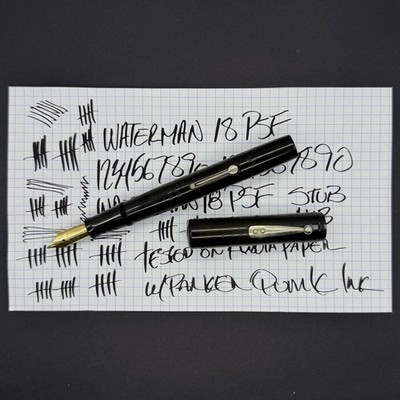 WATERMAN 18 PSF
1234567890 567890
18 PSF STUB
TESTED ON RHODIA PAPER
w/ PANKEN Ink